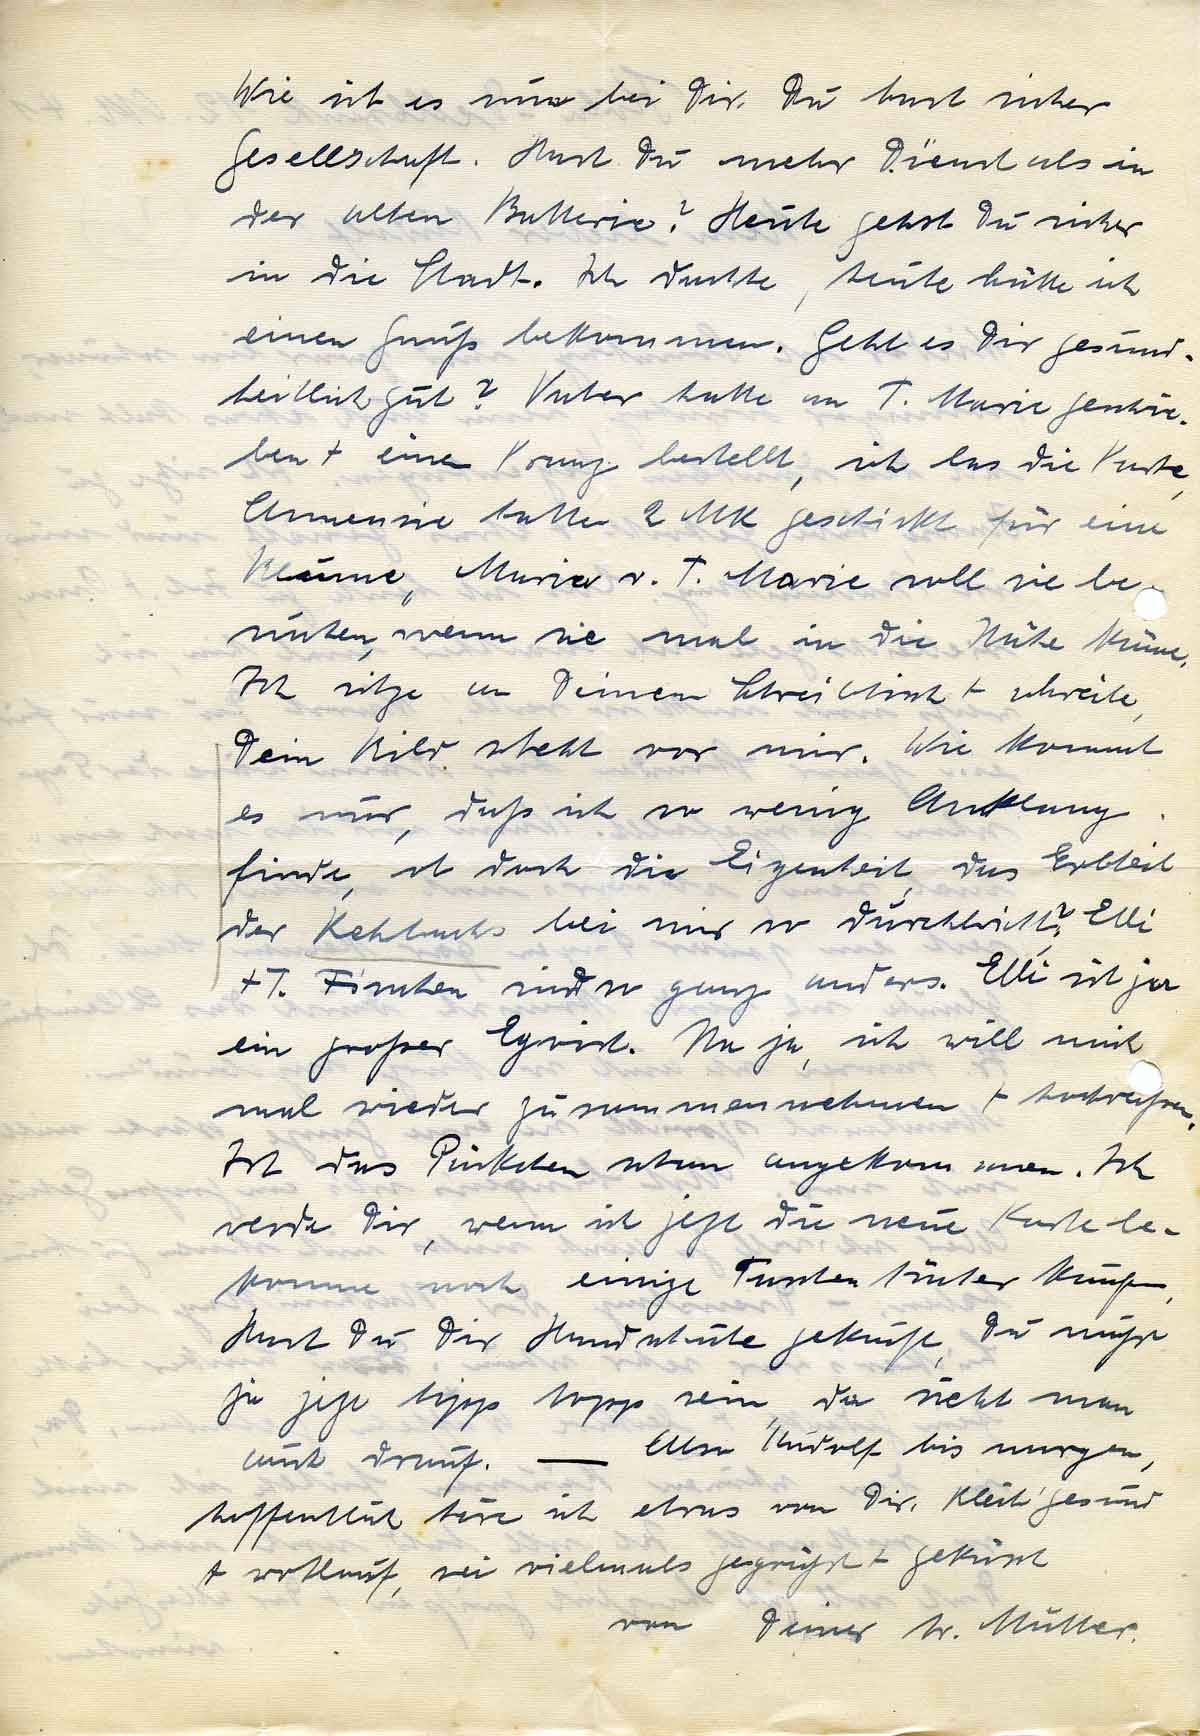 Wie ist es nun bei Dir. Du hast sicher
Gesellschaft. Hast Du mehr Dienst als in
der alten Batterie? Heute gehst Du sicher
in die Stadt. Ich dachte, heute hätte ich
einen Gruß bekommen. Geht es Dir gesund-
heitlich gut? Vater hatte an T. Marie geschrie-
ben + einen Kranz bestellt, ich las die Karte,
Annemie hatte 2 MK geschickt für eine
Maria v. T. Marie soll sie be-
wenn sie mal in die Nähe käme.
Ich sitze an Deinem Schreibtisch + schreibe,
Dein Bild steht vor mir. Wie kommt
es nur, daß ich so wenig Anklang
finde, ob doch die Eigenheit, das Erbteil
der Kehlbachs bei mir so durchbricht? Elli
+ T. Finchen sind so ganz anders. Elli ist ja
ein großer Egoist. Na ja, ich will mich
mal wieder zusammennehmen + hochraffen.
Ist das Päckchen schon angekommen. Ich
werde Dir, wenn ich jetzt die neue Karte be-
komme noch einige Taschentücher kaufen.
Hast Du Dir Handschuhe gekauft, Du mußt
ja jetzt tipp topp sein, da sieht man
auch drauf. — Also Rudolf bis morgen,
hoffentlich höre ich etwas von Dir. Bleib gesund
+ wohlauf, sei vielmals gegrüßt + geküsst
von Deiner tr. Mutter.